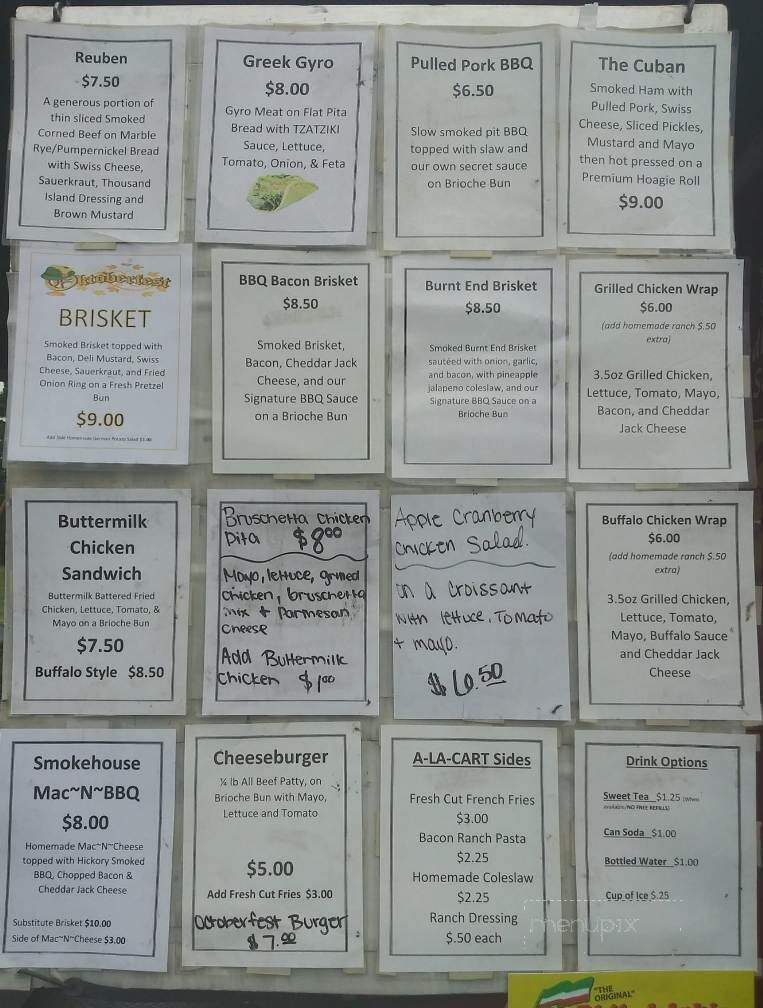 Reuben
$7.50
A generous portion of
thin sliced Smoked
Corned Beef on Marble
Rye/Pumpernickel Bread
with Swiss Cheese,
Sauerkraut, Thousand
Island Dressing and
Brown Mustard
Greek Gyro
$8.00
Gyro Meat on Flat Pita
Bread with TZATZIKI
Sauce, Lettuce,
Tomato, Onion, & Feta
Pulled Pork BBQ
$6.50
Slow smoked pit BBQ
topped with slaw and
our own secret sauce
on Brioche Bun
The Cuban
Smoked Ham with
Pulled Pork, Swiss
Cheese, Sliced Pickles,
Mustard and Mayo
then hot pressed on a
Premium Hoagie Roll
$9.00
Oktoberfest
BRISKET
Smoked Brisket topped with
Bacon, Deli Mustard, Swiss
Cheese, Sauerkraut, and Fried
Onion Ring on a Fresh Pretzel
Bun
$9.00
Add Side Homemade German Potato Salad
BBQ Bacon Brisket
$8.50
Smoked Brisket,
Bacon, Cheddar Jack
Cheese, and our
Signature BBQ Sauce
on a Brioche Bun
Burnt End Brisket
$8.50
Smoked Burnt End Brisket
sautéed with onion, garlic,
and bacon, with pineapple
jalapeno coleslaw, and our
Signature BBQ Sauce on a
Brioche Bun
Grilled Chicken Wrap
$6.00
(add homemade ranch $.50
extra)
3.5oz Grilled Chicken,
Lettuce, Tomato, Mayo,
Bacon, and Cheddar
Jack Cheese
Buttermilk
Chicken
Sandwich
Buttermilk Battered Fried
Chicken, Lettuce, Tomato, &
Mayo on a Brioche Bun
$7.50
Buffalo Style $8.50
Bruschetta Chicken
Pita $8.00
Mayo, lettuce, grilled
chicken, bruschetta
mix + Parmesan
Cheese
Add Buttermilk
Chicken $1.00
Apple Cranberry
Chicken Salad.
on a Croissant
with lettuce, Tomato
+ mayo.
$6.50
Buffalo Chicken Wrap
$6.00
(add homemade ranch $.50
extra)
3.5oz Grilled Chicken,
Lettuce, Tomato,
Mayo, Buffalo Sauce
and Cheddar Jack
Cheese
Smokehouse
Mac~N~BBQ
$8.00
Homemade Mac~N~Cheese
topped with Hickory Smoked
BBQ, Chopped Bacon &
Cheddar Jack Cheese
Substitute Brisket $10.00
Side of Mac~N~Cheese $3.00
Cheeseburger
¼ lb All Beef Patty, on
Brioche Bun with Mayo,
Lettuce and Tomato
$5.00
Add Fresh Cut Fries $3.00
Octoberfest Burger
$7.00
A-LA-CART Sides
Fresh Cut French Fries
$3.00
Bacon Ranch Pasta
$2.25
Homemade Coleslaw
$2.25
Ranch Dressing
$.50 each
Drink Options
Sweet Tea $1.25 (When
available/NO FREE REFILLS)
Can Soda $1.00
Bottled Water $1.00
Cup of Ice $.25
menupix
"THE
ORIGINAL"